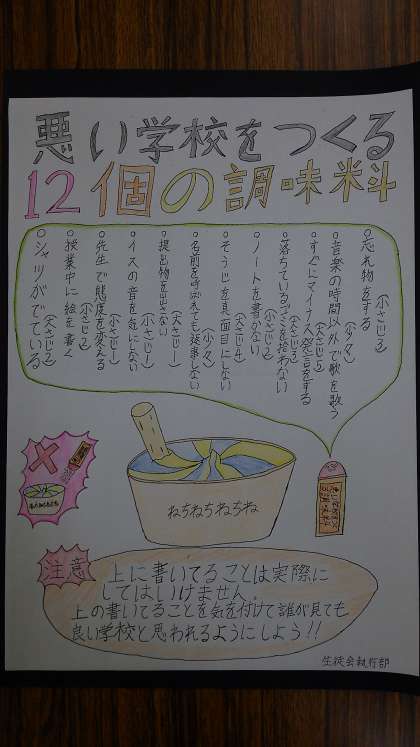 悪い学校をつくる
12個の調味料
○忘れ物をする
(小さじ3)
○音楽の時間以外で歌を歌う
(少々)
○すぐにマイナス発言をする
(大さじ5)
○落ちているゴミを拾わない
(大さじ3)
○ノートを書かない
(小さじ2)
○そうじを真面目にしない
(大さじ4)
○名前を呼ばれても返事しない
(少々)
○提出物を出さない
(大さじ1)
○イスの音を気にしない
(小さじ1)
○先生で態度を変える
(小さじ1)
○授業中に絵を書く
(小さじ2)
○シャツがでている
(大さじ2)
ねちねちねちね
注意
上に書いてることは実際に
してはいけません。
上の書いてることを気を付けて誰が見ても
良い学校と思われるようにしよう!!
生徒会執行部